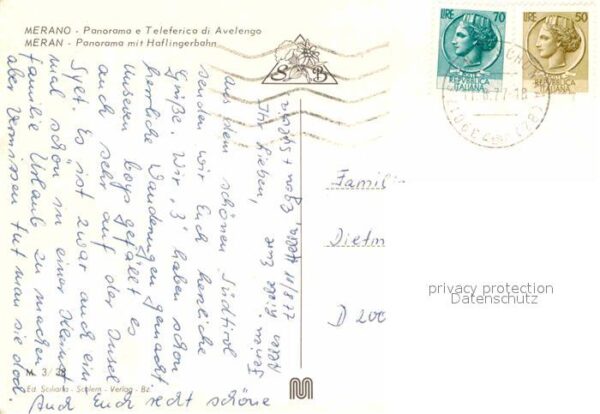 MERANO - Panorama e Teleferica di Avelengo
MERAN - Panorama mit Haflingerbahn
S B
LIRE 70
REPVBBLICA
ITALIANA
LIRE 50
REPVBBLICA
ITALIANA
Ihr Lieben,
aus dem schönen Südtirol
senden wir Euch herzliche
Grüße. Wir "3" haben schon
herrliche Wanderungen gemacht
unseren boys gefällt es
auch sehr auf der Insel
Sylt. Es ist zwar auch ein
mal schön in einer Kleinst
familie Urlaub zu machen
aber vermissen tut man sie doch.
Auch Euch recht schöne
Ferien.
Alles Liebe Eure
Hella, Egon +
Famili
Dietm
D 200
privacy protection
Datenschutz
M 3/
Ed. Sciliaria - Schlern - Verlag - Bz